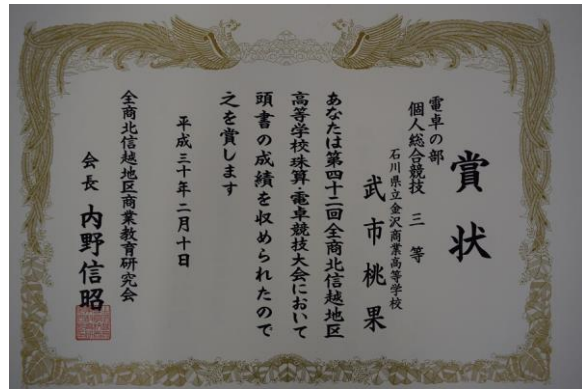 賞状
電卓の部
個人総合競技 三等
石川県立金沢商業高等学校
武市桃果
あなたは第四十二回全商北信越地区
高等学校珠算・電卓競技大会において
頭書の成績を収められたので
之を賞します
平成三十年二月十日
全商北信越地区商業教育研究会
会長 内野信昭